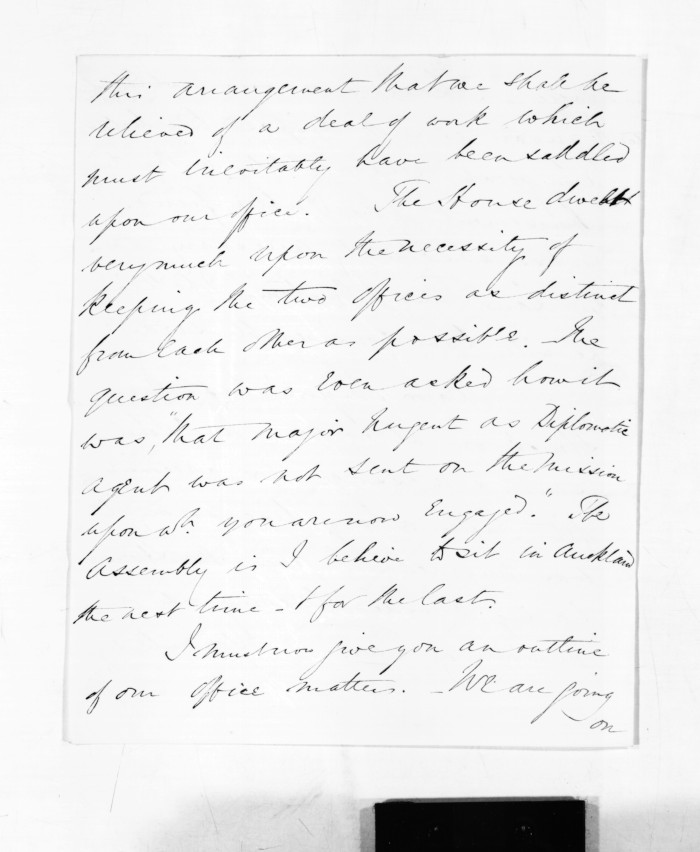 this arrangement that we shall be
relieved of a deal of work which
must inevitably have been saddled
upon our office. The House dwelt
very much upon the necessity of
keeping the two offices as distinct
from each other as possible. The
question was even asked how it
was, "that Major Nugent as Diplomatic
agent was not sent on the mission
upon wh. you are now engaged." The
Assembly is I believe to sit in Auckland
the next time - & for the last.
I must now give you an outline
of our office matters. - We are going
on